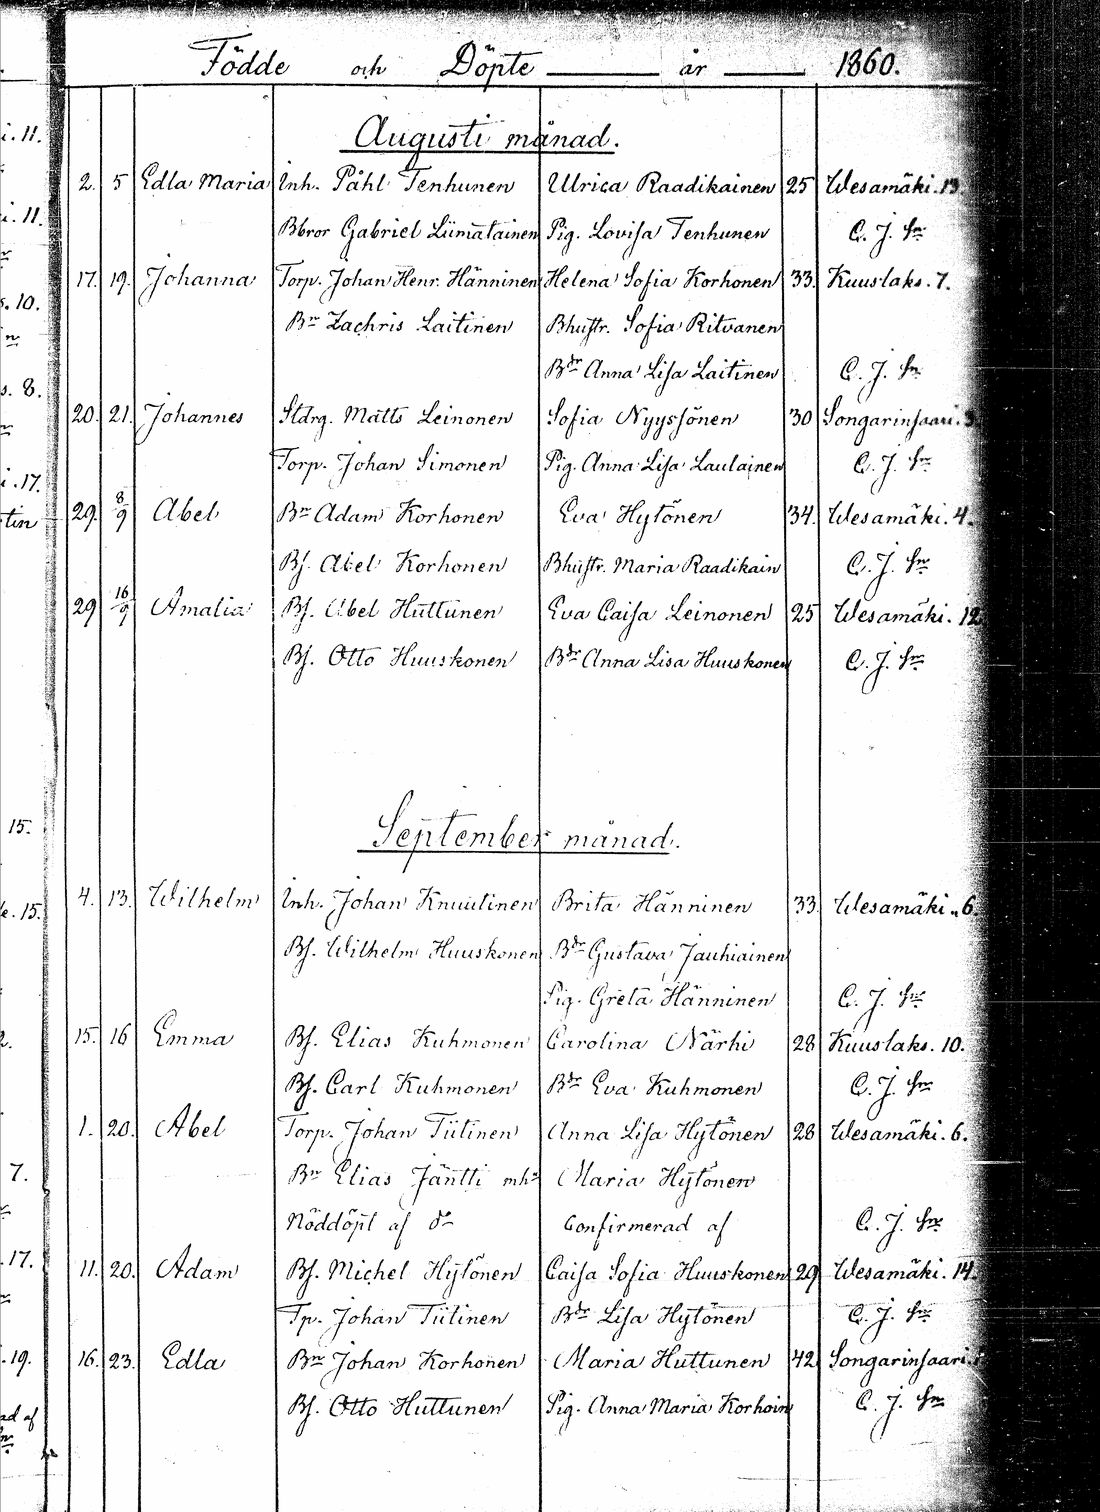 Födde och Döpte år 1860.
Augusti månad.
2. 5 Edla Maria Inh. Påhl Tenhunen Ulrica Raadikainen 25 Wesamäki. 13
Bbror Gabriel Liimatainen Pig. Lovisa Tenhunen C. J. Sm
17. 19. Johanna Torp. Johan Henr. Hänninen Helena Sofia Korhonen 33. Kuuslaks. 7.
Bn Zachris Laitinen Bhustr. Sofia Ritvanen
Bdr Anna Lisa Laitinen C. J. Sm
20. 21. Johannes Stdrg. Matts Leinonen Sofia Nyyssönen 30 Songarinsaari. 3
Torp. Johan Simonen Pig. Anna Lisa Laulainen C. J. Sm
29. 8/9 Abel Bn Adam Korhonen Eva Hytönen 34. Wesamäki. 4.
Bs. Abel Korhonen Bhustr. Maria Raadikain C. J. Sm
29 16/9 Amalia Bs. Abel Huttunen Eva Caisa Leinonen 25 Wesamäki. 12
Bs. Otto Huuskonen Bdr Anna Lisa Huuskonen C. J. Sm
September månad.
4. 13. Wilhelm Inh. Johan Knuutinen Brita Hänninen 33. Wesamäki. 6.
Bs. Wilhelm Huuskonen Bdr Gustava Jauhiainen
Pig. Greta Hänninen C. J. Sm
15. 16 Emma Bs. Elias Kuhmonen Carolina Närhi 28 Kuuslaks. 10.
Bs. Carl Kuhmonen Bdr Eva Kuhmonen C. J. Sm
1. 20. Abel Torp. Johan Tiitinen Anna Lisa Hytönen 28 Wesamäki. 6.
Bn Elias Jäntti mhu Maria Hytönen
Nöddöpt af dn Confirmerad af C. J. Sm
11. 20. Adam Bs. Michel Hytönen Caisa Sofia Huuskonen 29 Wesamäki. 14.
Tp. Johan Tiitinen Bdr Lisa Hytönen C. J. Sm
16. 23. Edla Bn Johan Korhonen Maria Huttunen 42 Songarinsaari.
Bs. Otto Huttunen Pig. Anna Maria Korhoin C. J. Sm